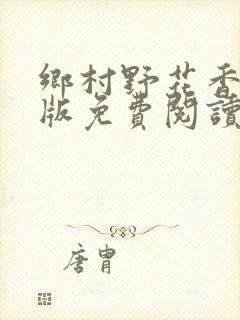 鄉村野花香
版免費閱讀
唐胄